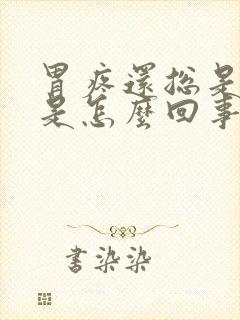 胃疼還總是
是怎麼回事
書染染